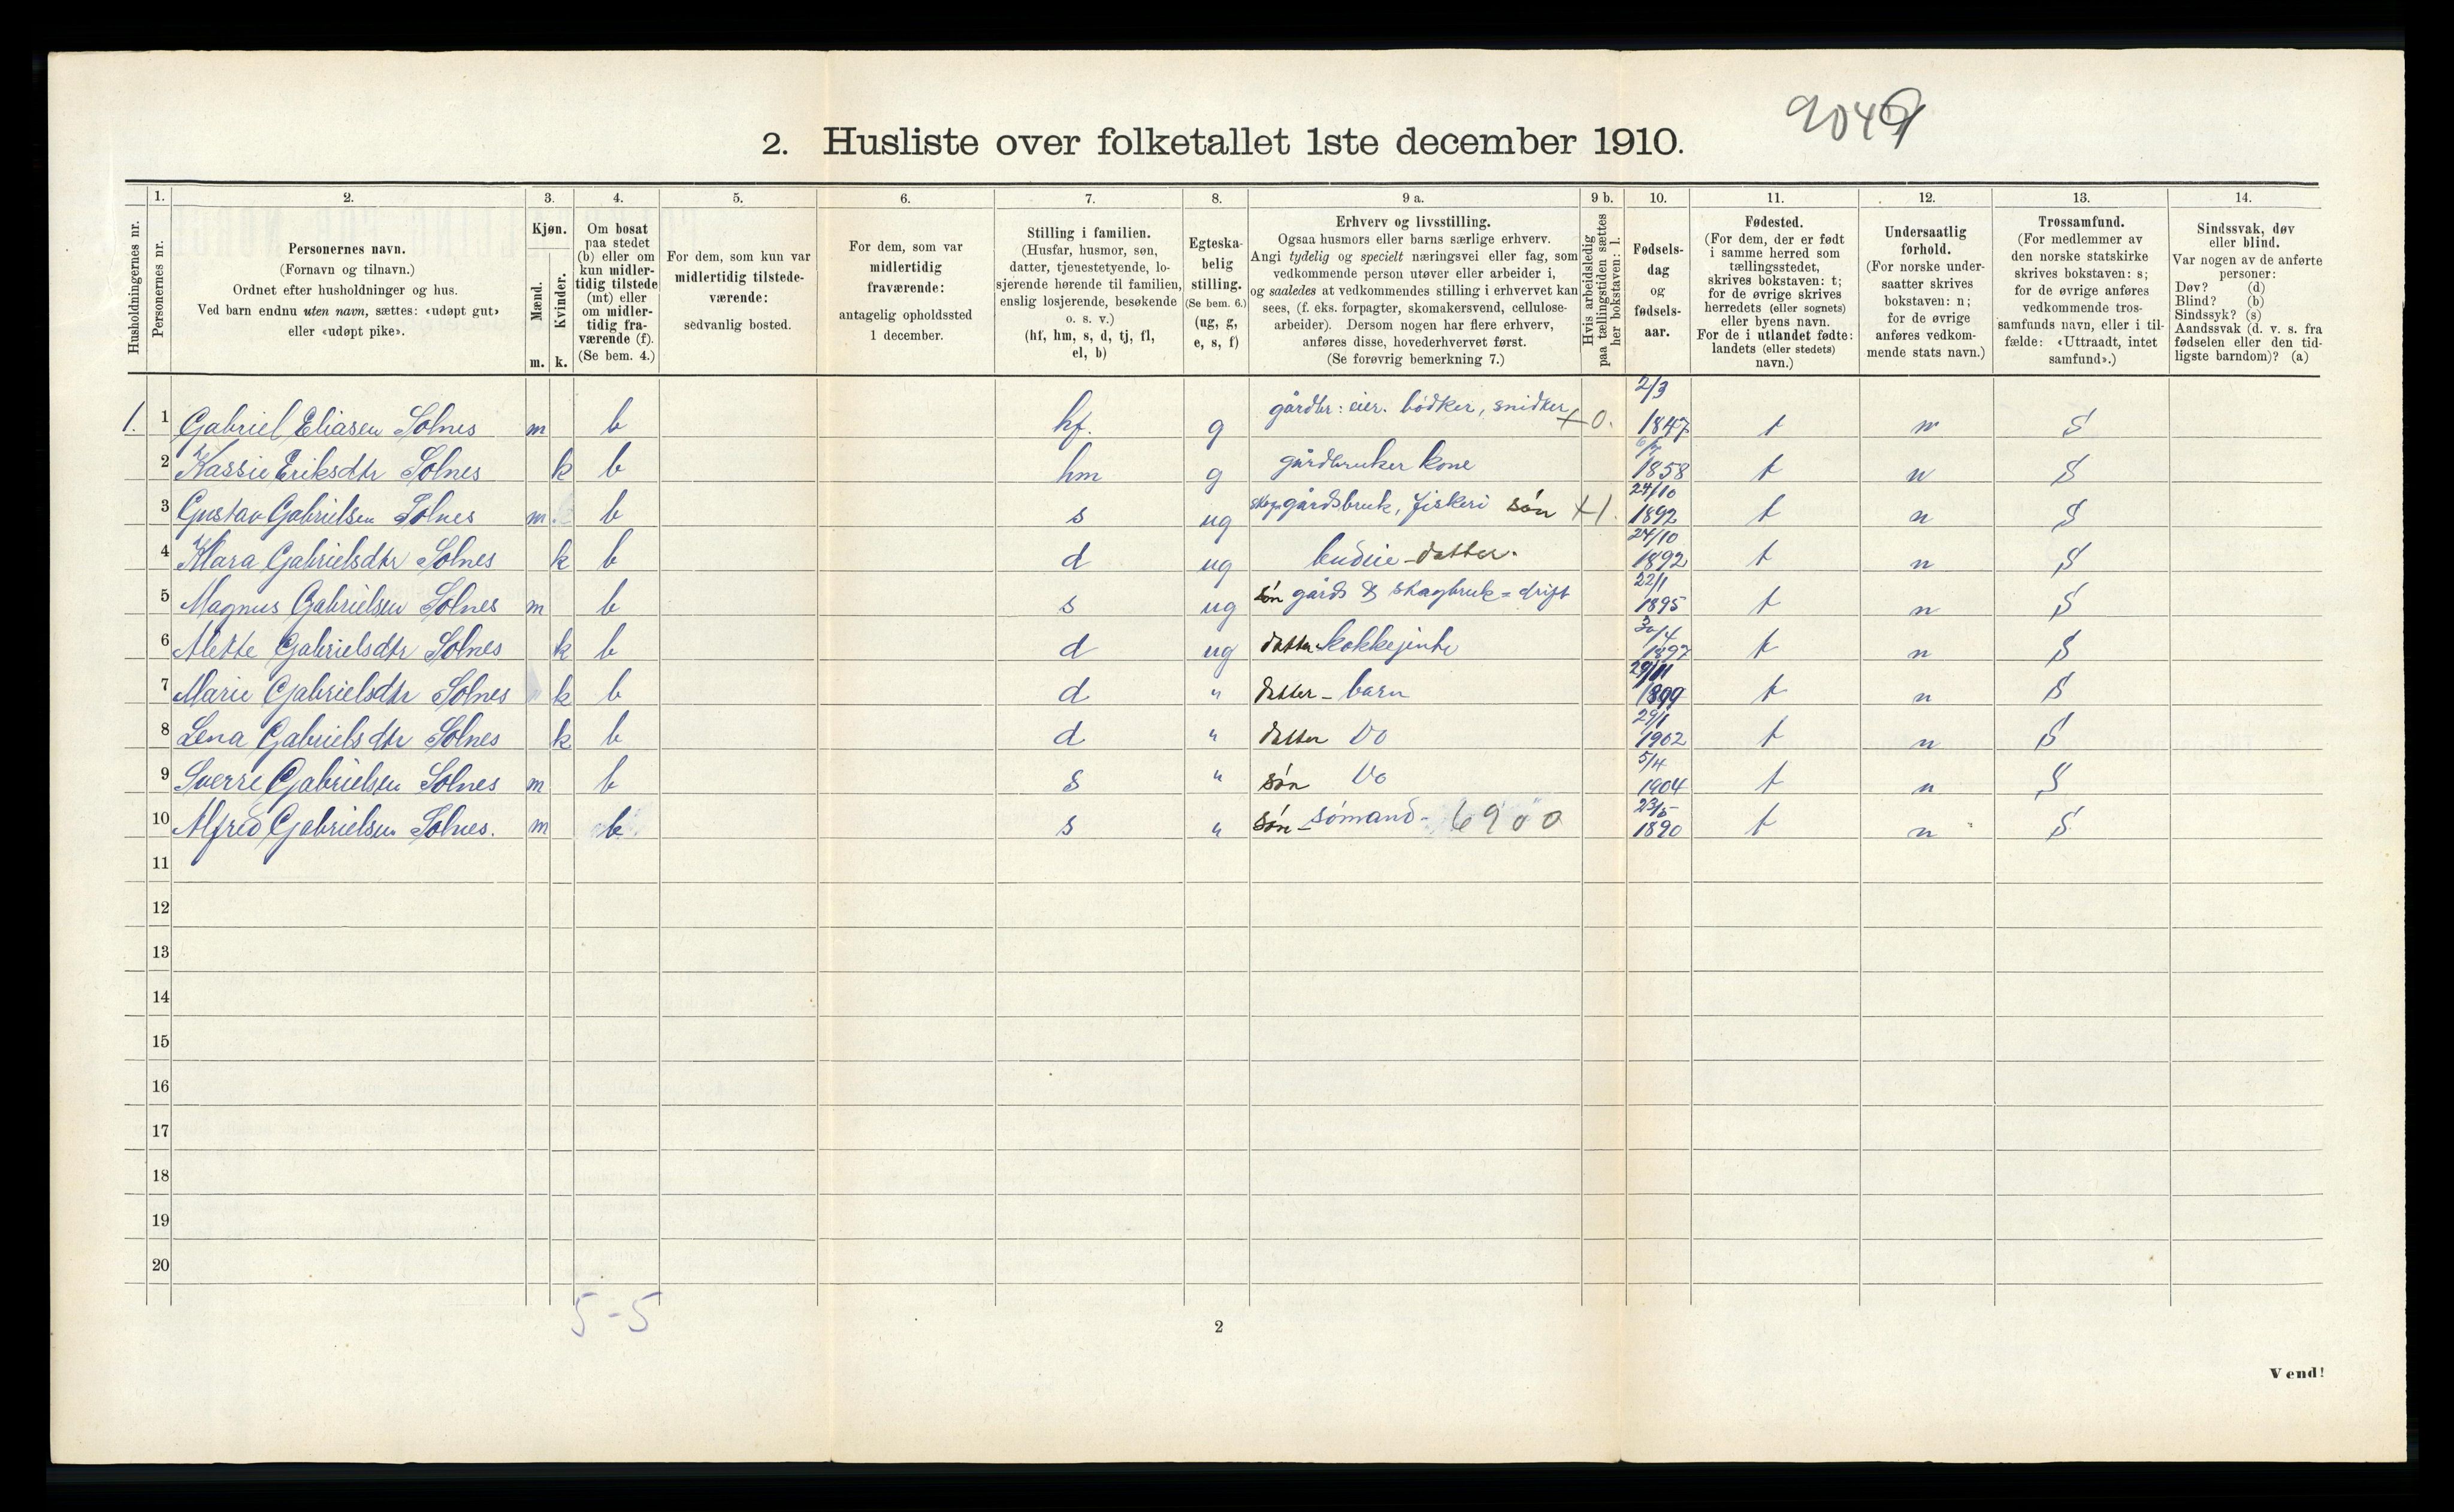 9049
2. Husliste over folketallet 1ste december 1910.
Husholdningernes nr.
1.
Personernes nr.
2.
Personernes navn.
(Fornavn og tilnavn.)
Ordnet efter husholdninger og hus.
Ved barn endnu uten navn, sættes: «udøpt gut»
eller «udøpt pike».
3.
Kjøn.
Mænd.
Kvinder.
m. k.
4.
Om bosat
paa stedet
(b) eller om
kun midler-
tidig tilstede
(mt) eller
om midler-
tidig fra-
værende (f).
(Se bem. 4.)
5.
For dem, som kun var
midlertidig tilstede-
værende:
sedvanlig bosted.
6.
For dem, som var
midlertidig
fraværende:
antagelig opholdssted
1 december.
7.
Stilling i familien.
(Husfar, husmor, søn,
datter, tjenestetyende, lo-
sjerende hørende til familien,
enslig losjerende, besøkende
o. s. v.)
(hf, hm, s, d, tj, fl,
el, b)
8.
Egteska-
belig
stilling.
(Se bem. 6.)
(ug, g,
e, s, f)
9 a.
Erhverv og livsstilling.
Ogsaa husmors eller barns særlige erhverv.
Angi tydelig og specielt næringsvei eller fag, som
vedkommende person utøver eller arbeider i,
og saaledes at vedkommendes stilling i erhvervet kan
sees, (f. eks. forpagter, skomakersvend, cellulose-
arbeider). Dersom nogen har flere erhverv,
anføres disse, hovederhvervet først.
(Se forøvrig bemerkning 7.)
9 b.
Hvis arbeidsledig
paa tællingstiden sættes
her bokstaven: l.
10.
Fødsels-
dag
og
fødsels-
aar.
11.
Fødested.
(For dem, der er født
i samme herred som
tællingsstedet,
skrives bokstaven: t;
for de øvrige skrives
herredets (eller sognets)
eller byens navn.
For de i utlandet fødte:
landets (eller stedets)
navn.)
12.
Undersaatlig
forhold.
(For norske under-
saatter skrives
bokstaven: n;
for de øvrige
anføres vedkom-
mende stats navn.)
13.
Trossamfund.
(For medlemmer av
den norske statskirke
skrives bokstaven: s;
for de øvrige anføres
vedkommende tros-
samfunds navn, eller i til-
fælde: «Uttraadt, intet
samfund».)
14.
Sindssvak, døv
eller blind.
Var nogen av de anførte
personer:
Døv? (d)
Blind? (b)
Sindssyk? (s)
Aandssvak (d. v. s. fra
fødselen eller den tid-
ligste barndom)? (a)
1. 1 Gabriel Eliasen Solnes m b hf. g gårdbr: eier. bødker, snidker +0. 2/3 1847 t n S
2 Kassie Eriksdtr Solnes k b hm g gårdbruker kone 1858 t n S
3 Gustav Gabrielsen Solnes m. b s ug skog gårdsbruk, fiskeri søn +1. 24/10 1892 t n S
4 Klara Gabrielsdtr Solnes k b d ug budeie - datter. 24/10 1892 t n S
5 Magnus Gabrielsen Solnes m b s ug søn gårds & skogbruk=drift 22/1 1895 t n S
6 Alette Gabrielsdtr Solnes k b d ug datter kokkejente 30/4 1897 t n S
7 Marie Gabrielsdtr Solnes k b d " datter - barn 29/11 1899 t n S
8 Lena Gabrielsdtr Solnes k b d " datter Do 29/1 1902 t n S
9 Sverre Gabrielsen Solnes m b s " søn Do 5/4 1904 t n S
10 Alfred Gabrielsen Solnes. m b s " søn - sømand - 6900 23/5 1890 t n S
11
12
13
14
15
16
17
18
19
20
5 - 5
2
Vend!